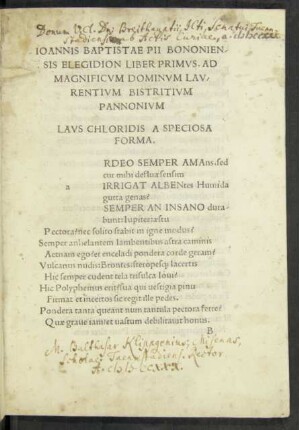 IOANNIS BAPTISTAE PII BONONIEN-
SIS ELEGIDION LIBER PRIMVS. AD
MAGNIFICVM DOMINVM LAV-
RENTIVM BISTRITIVM
PANNONIVM
LAVS CHLORIDIS A SPECIOSA
FORMA.
RDEO SEMPER AMAns, sed
cur mihi defluxa sensim
a IRRIGAT ALBENtes Humida
gutta genas?
SEMPER AN INSANO dura-
bunt Iupiter æstu
Pectora? nec solito stabit in igne modus?
Semper anhelantem lambentibus astra caminis
Aetnam ego & enceladi pondera corde geram?
Vulcanus nudis: Brontes: steropesq; lacertis
Hic semper cudent tela trisulca Ioui?
Hic Polyphemus erit: sua qui uestigia pinu
Firmat et incertos sic regit ille pedes.
Pondera tanta queant num tantula pectora ferre?
Quæ graue tam et uastum debilitauit honus.
B
M. Balthasar
Rector